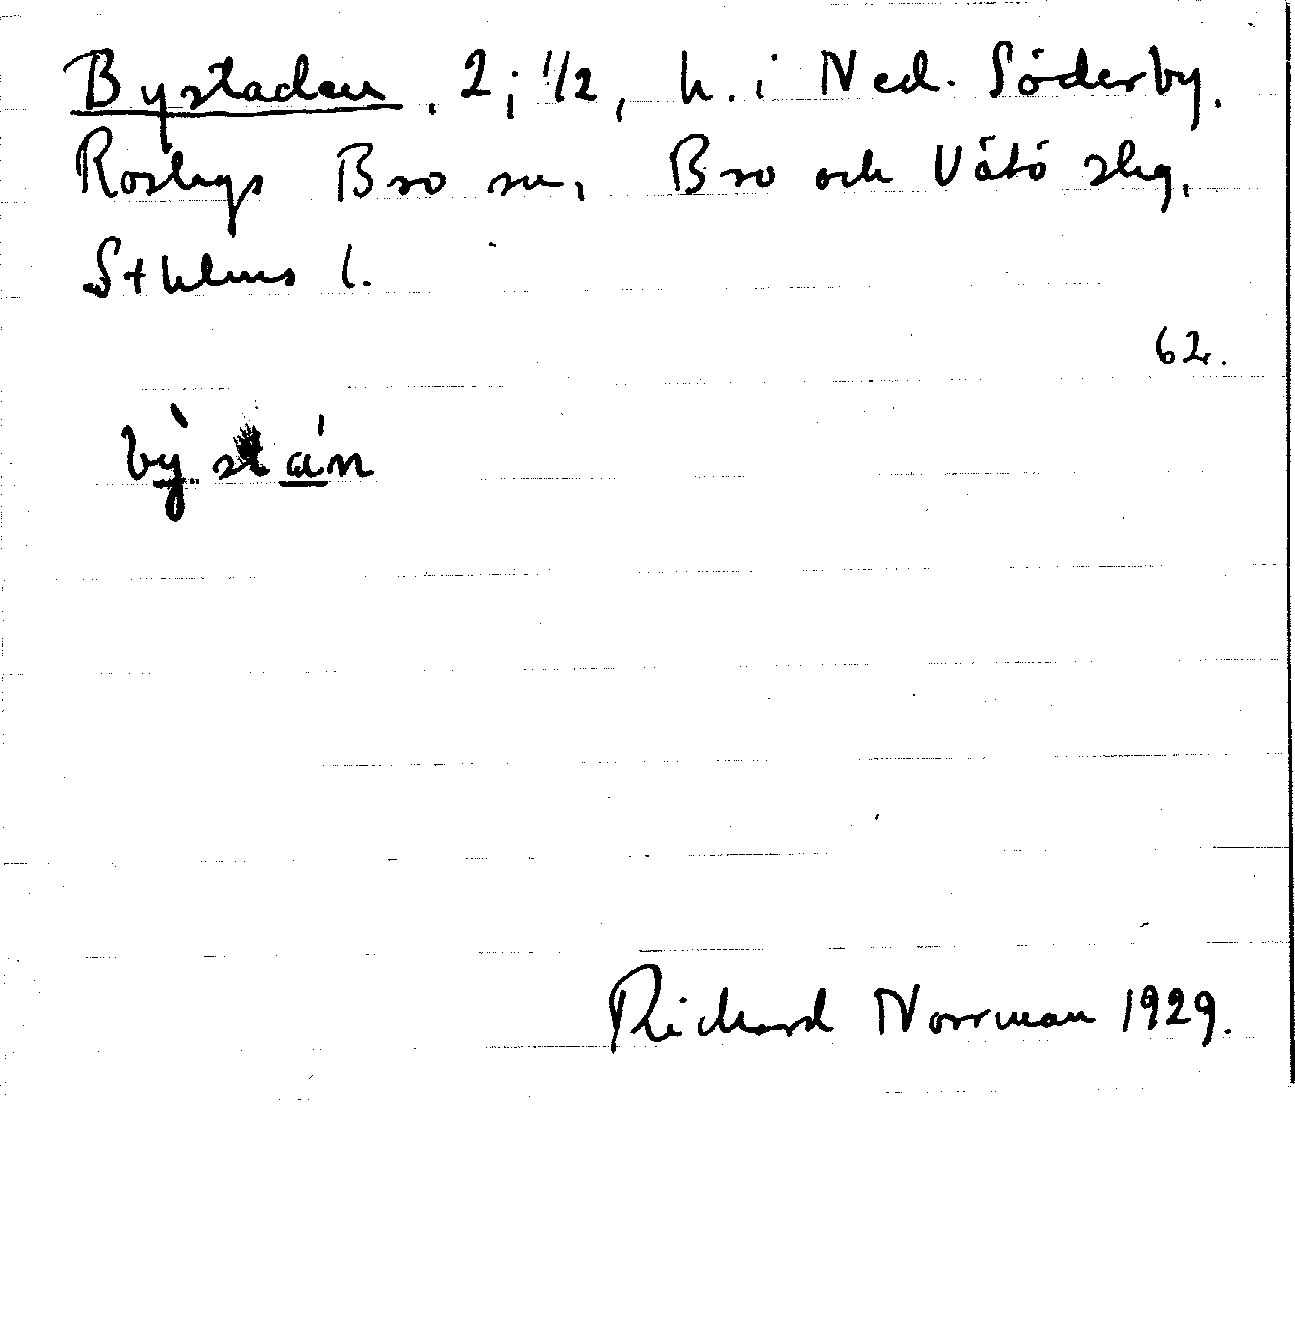 Bystaden. 2; 1/2, h. i Ned. Söderby.
Roslags Bro sn, Bro och Vätö skg,
Sthlms l.
62.
bỳstán
Richard Norrman 1929.